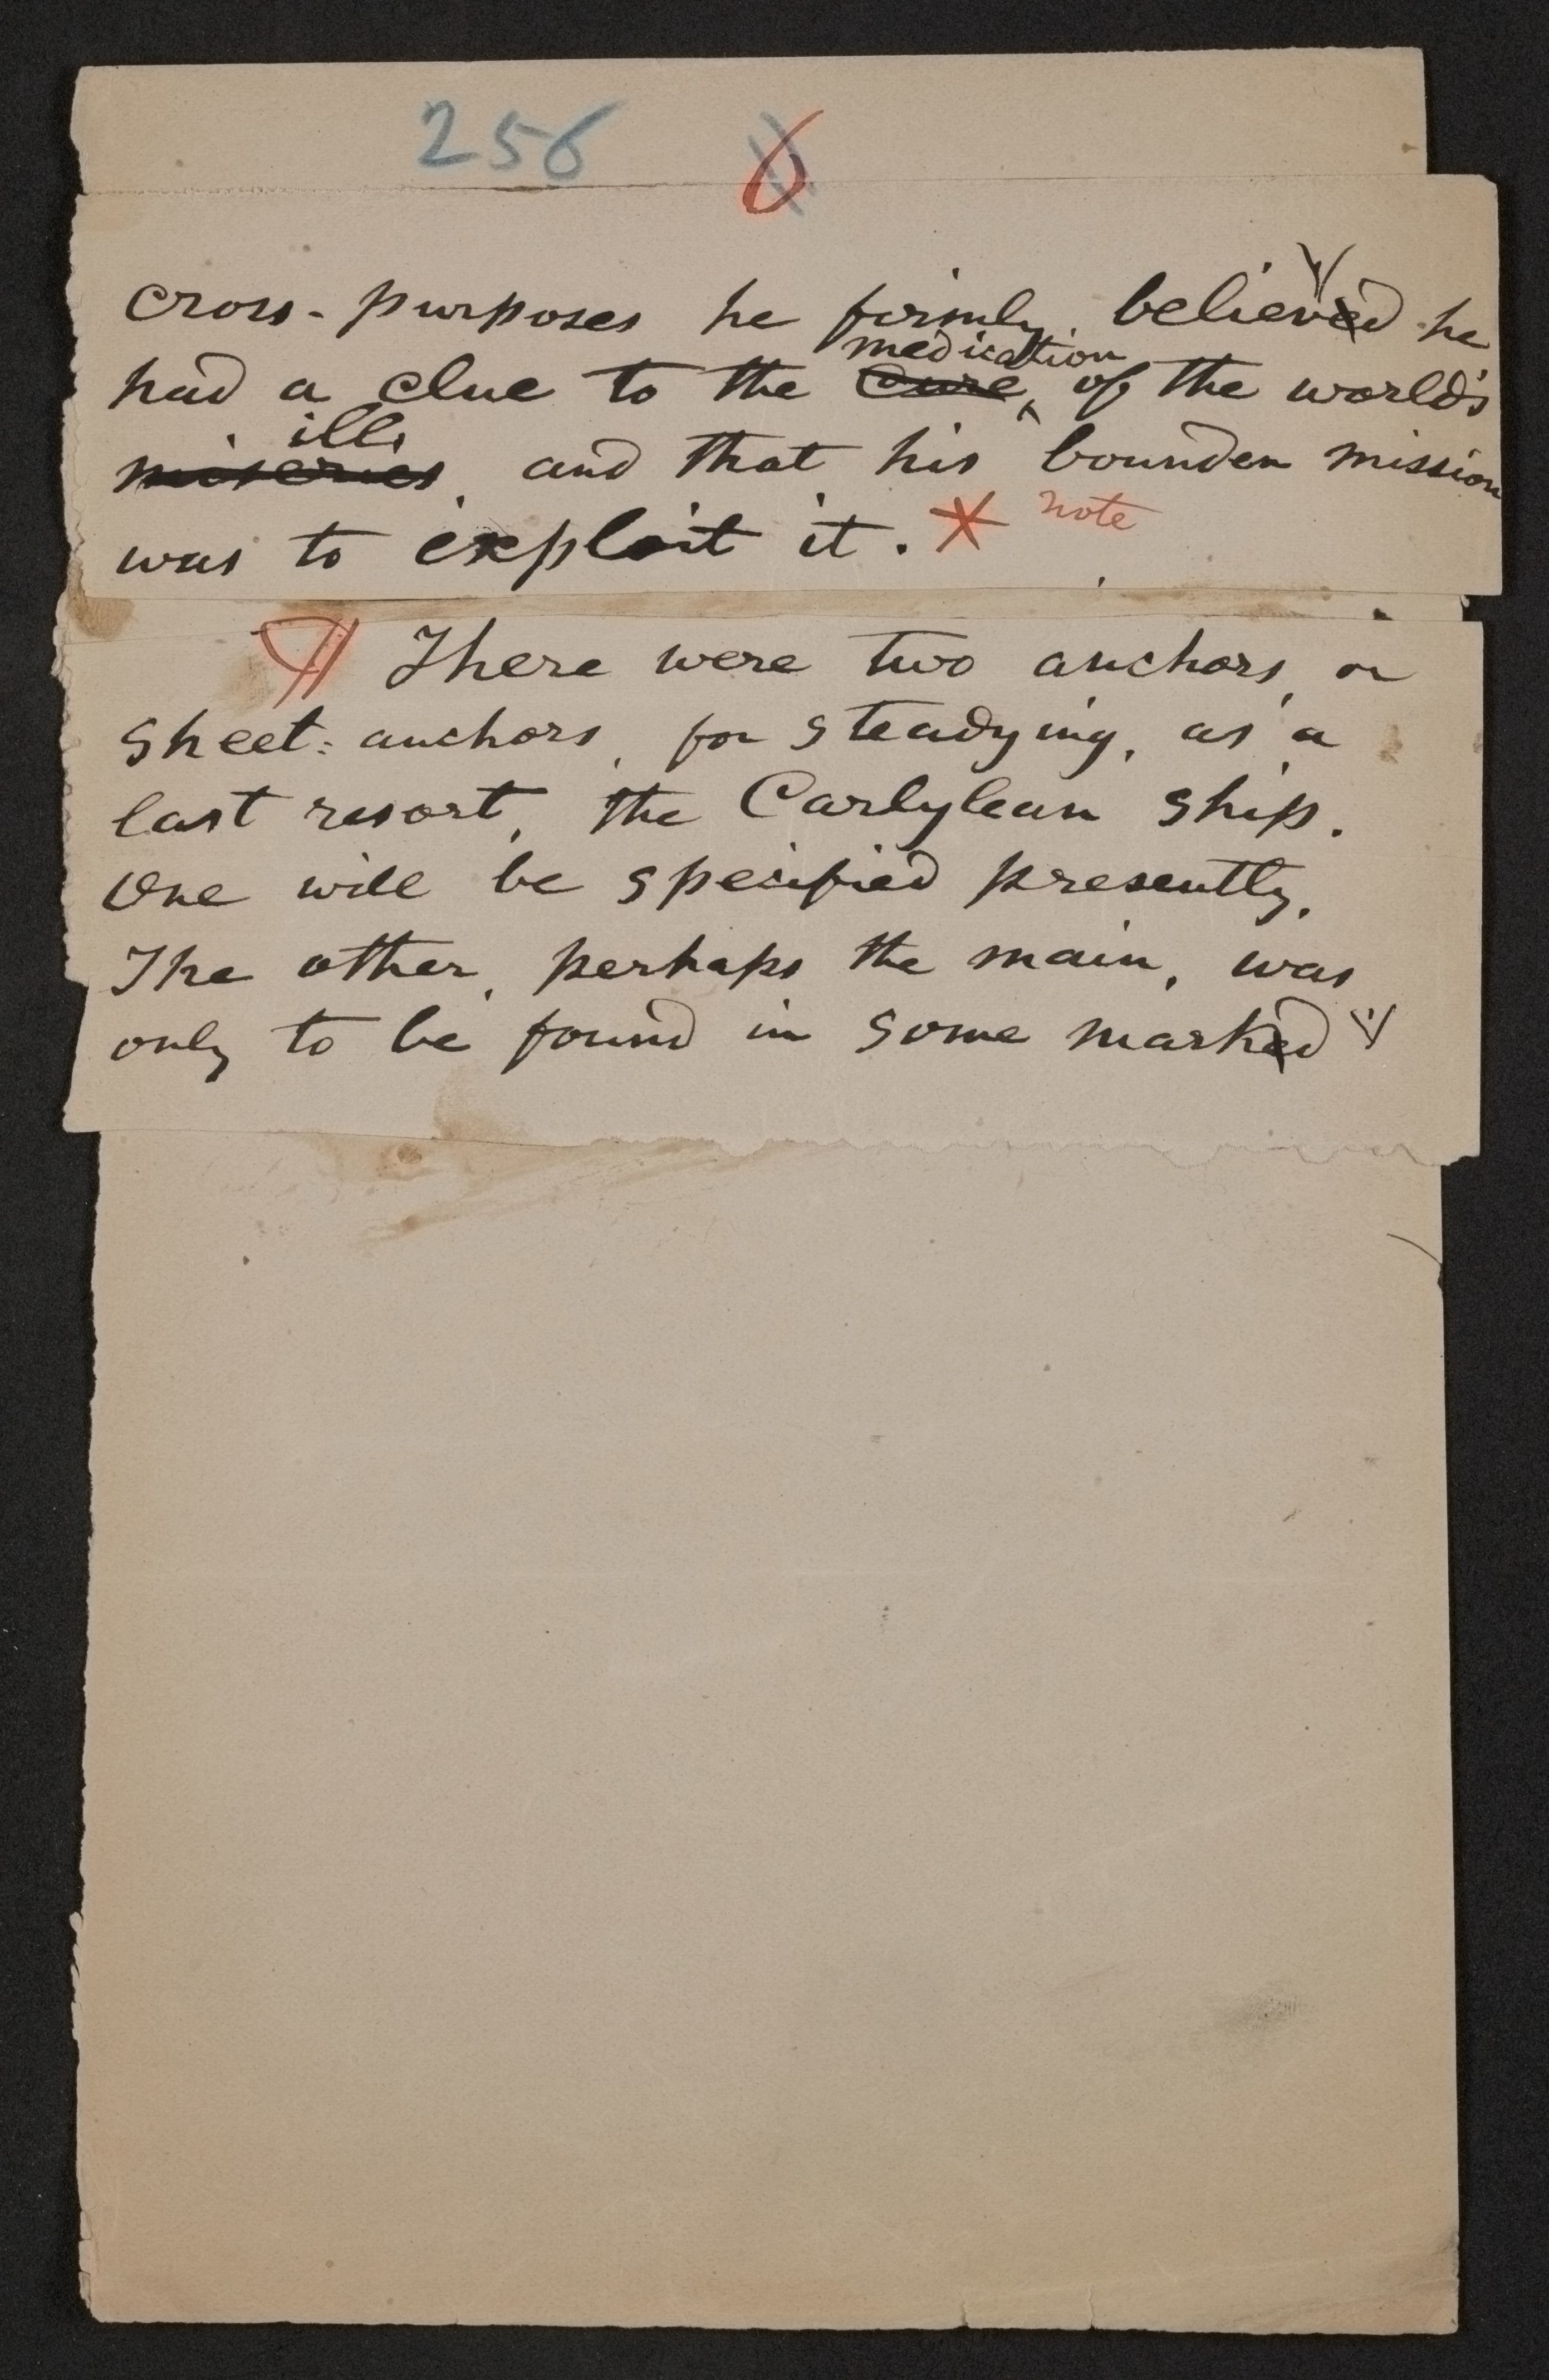 256 6
cross-purposes he firmly believ'd he
medication
had a clue to the cure, of the world's
ills
miseries, and that his bounden mission
was to exploit it. * note
¶ There were two anchors, or
sheet-anchors, for steadying, as a
last resort, the Carlylean ship.
One will be specified presently.
The other, perhaps the main, was
only to be found in some mark'd